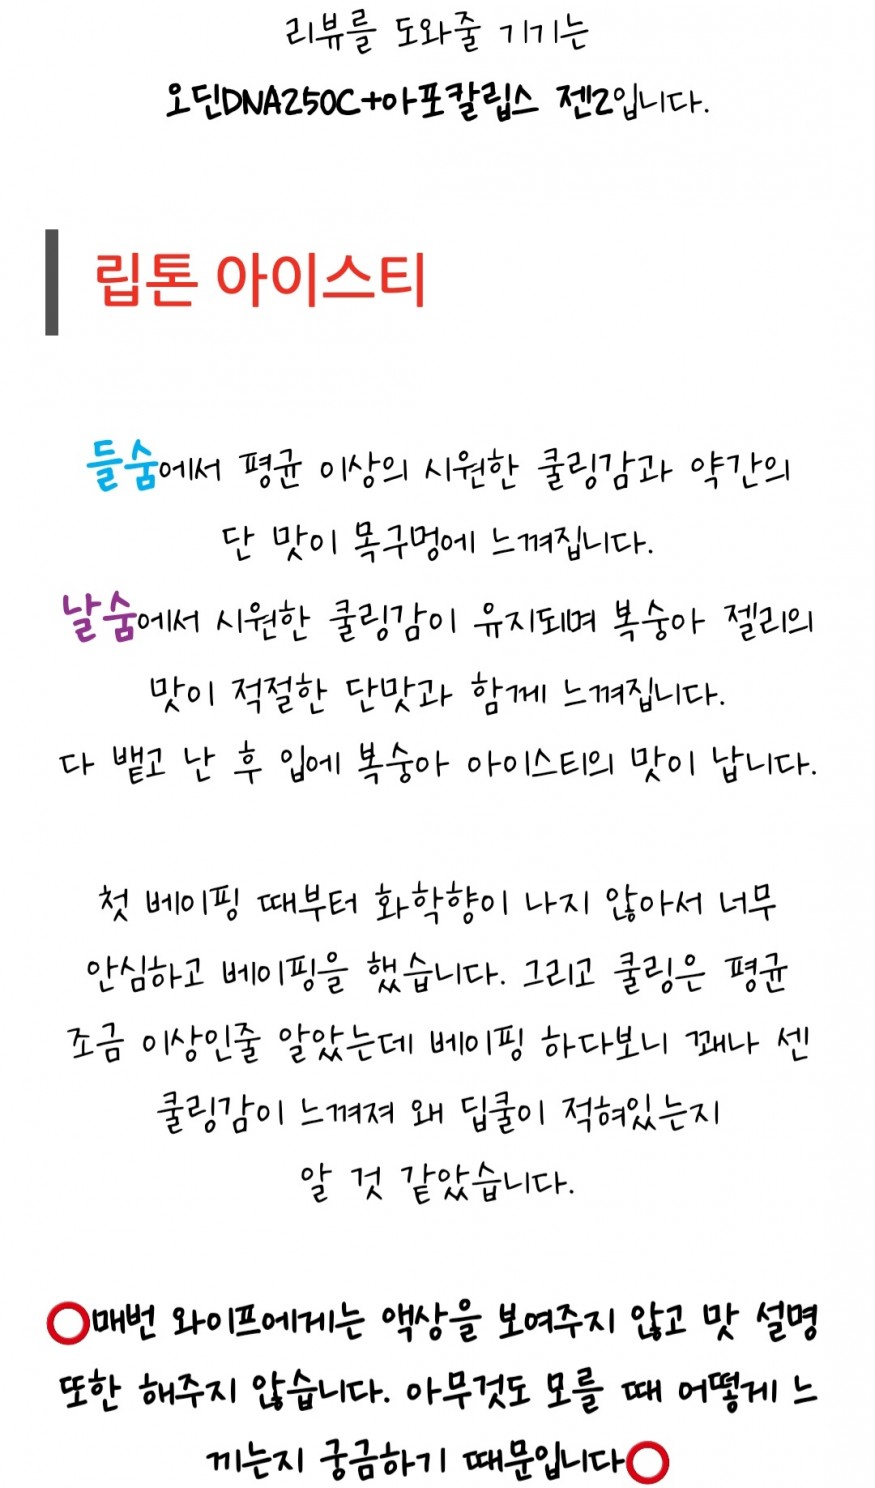 리뷰를 도와줄 기기는
오딘DNA250C+아포칼립스 젠2입니다.
립톤 아이스티
들숨에서 평균 이상의 시원한 쿨링감과 약간의
단 맛이 목구멍에 느껴집니다.
날숨에서 시원한 쿨링감이 유지되며 복숭아 젤리의
맛이 적절한 단맛과 함께 느껴집니다.
다 뱉고 난 후 입에 복숭아 아이스티의 맛이 납니다.
첫 베이핑 때부터 화학향이 나지 않아서 너무
안심하고 베이핑을 했습니다. 그리고 쿨링은 평균
조금 이상인줄 알았는데 베이핑 하다보니 꽤나 센
쿨링감이 느껴져 왜 딥쿨이 적혀있는지
알 것 같았습니다.
⭕매번 와이프에게는 액상을 보여주지 않고 맛 설명
또한 해주지 않습니다. 아무것도 모를 때 어떻게 느
끼는지 궁금하기 때문입니다⭕